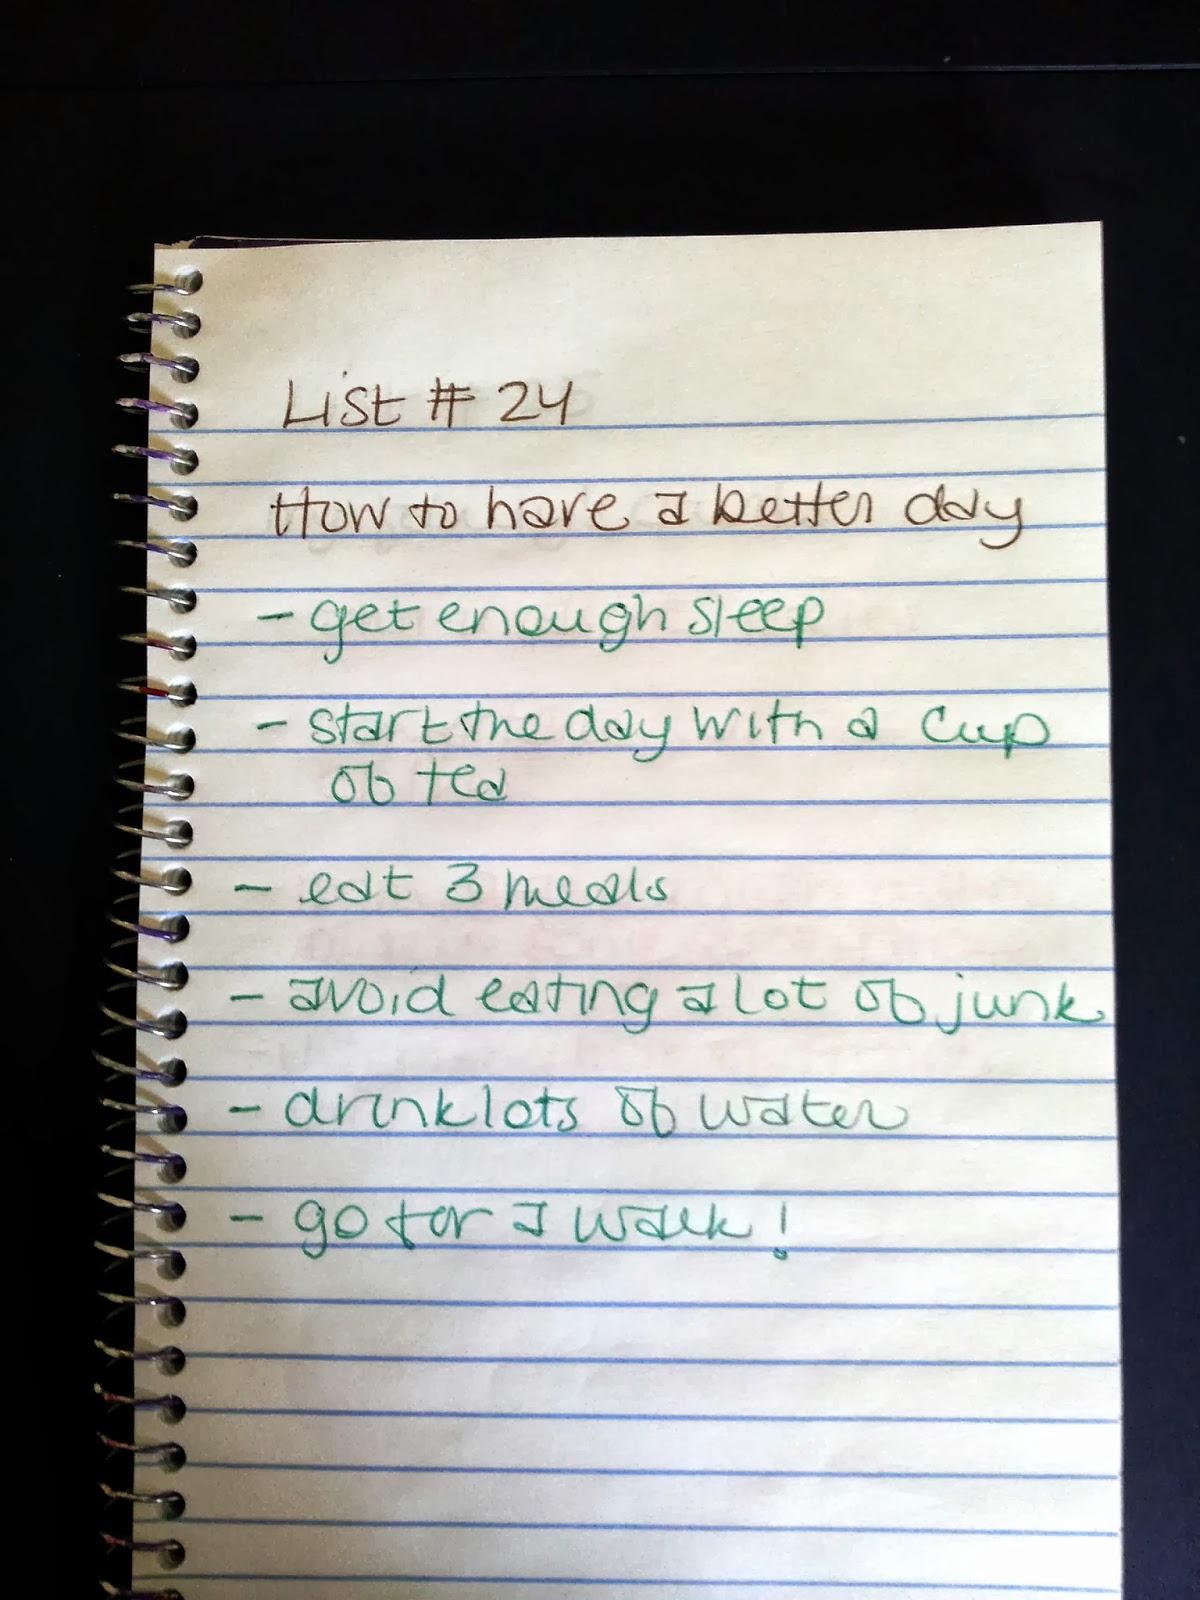 List # 24
How to have a better day
- get enough sleep
- start the day with a cup
of tea
- eat 3 meals
- avoid eating a lot of junk
- drink lots of water
- go for a walk!